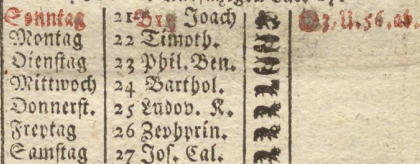 Sonntag 21 B19 Joach
Montag 22 Timoth.
Dienstag 23 Phil. Ben.
Mittwoch 24 Barthol.
Donnerst. 25 Ludov. K.
Freytag 26 Zephyrin.
Samstag 27 Jos. Cal.